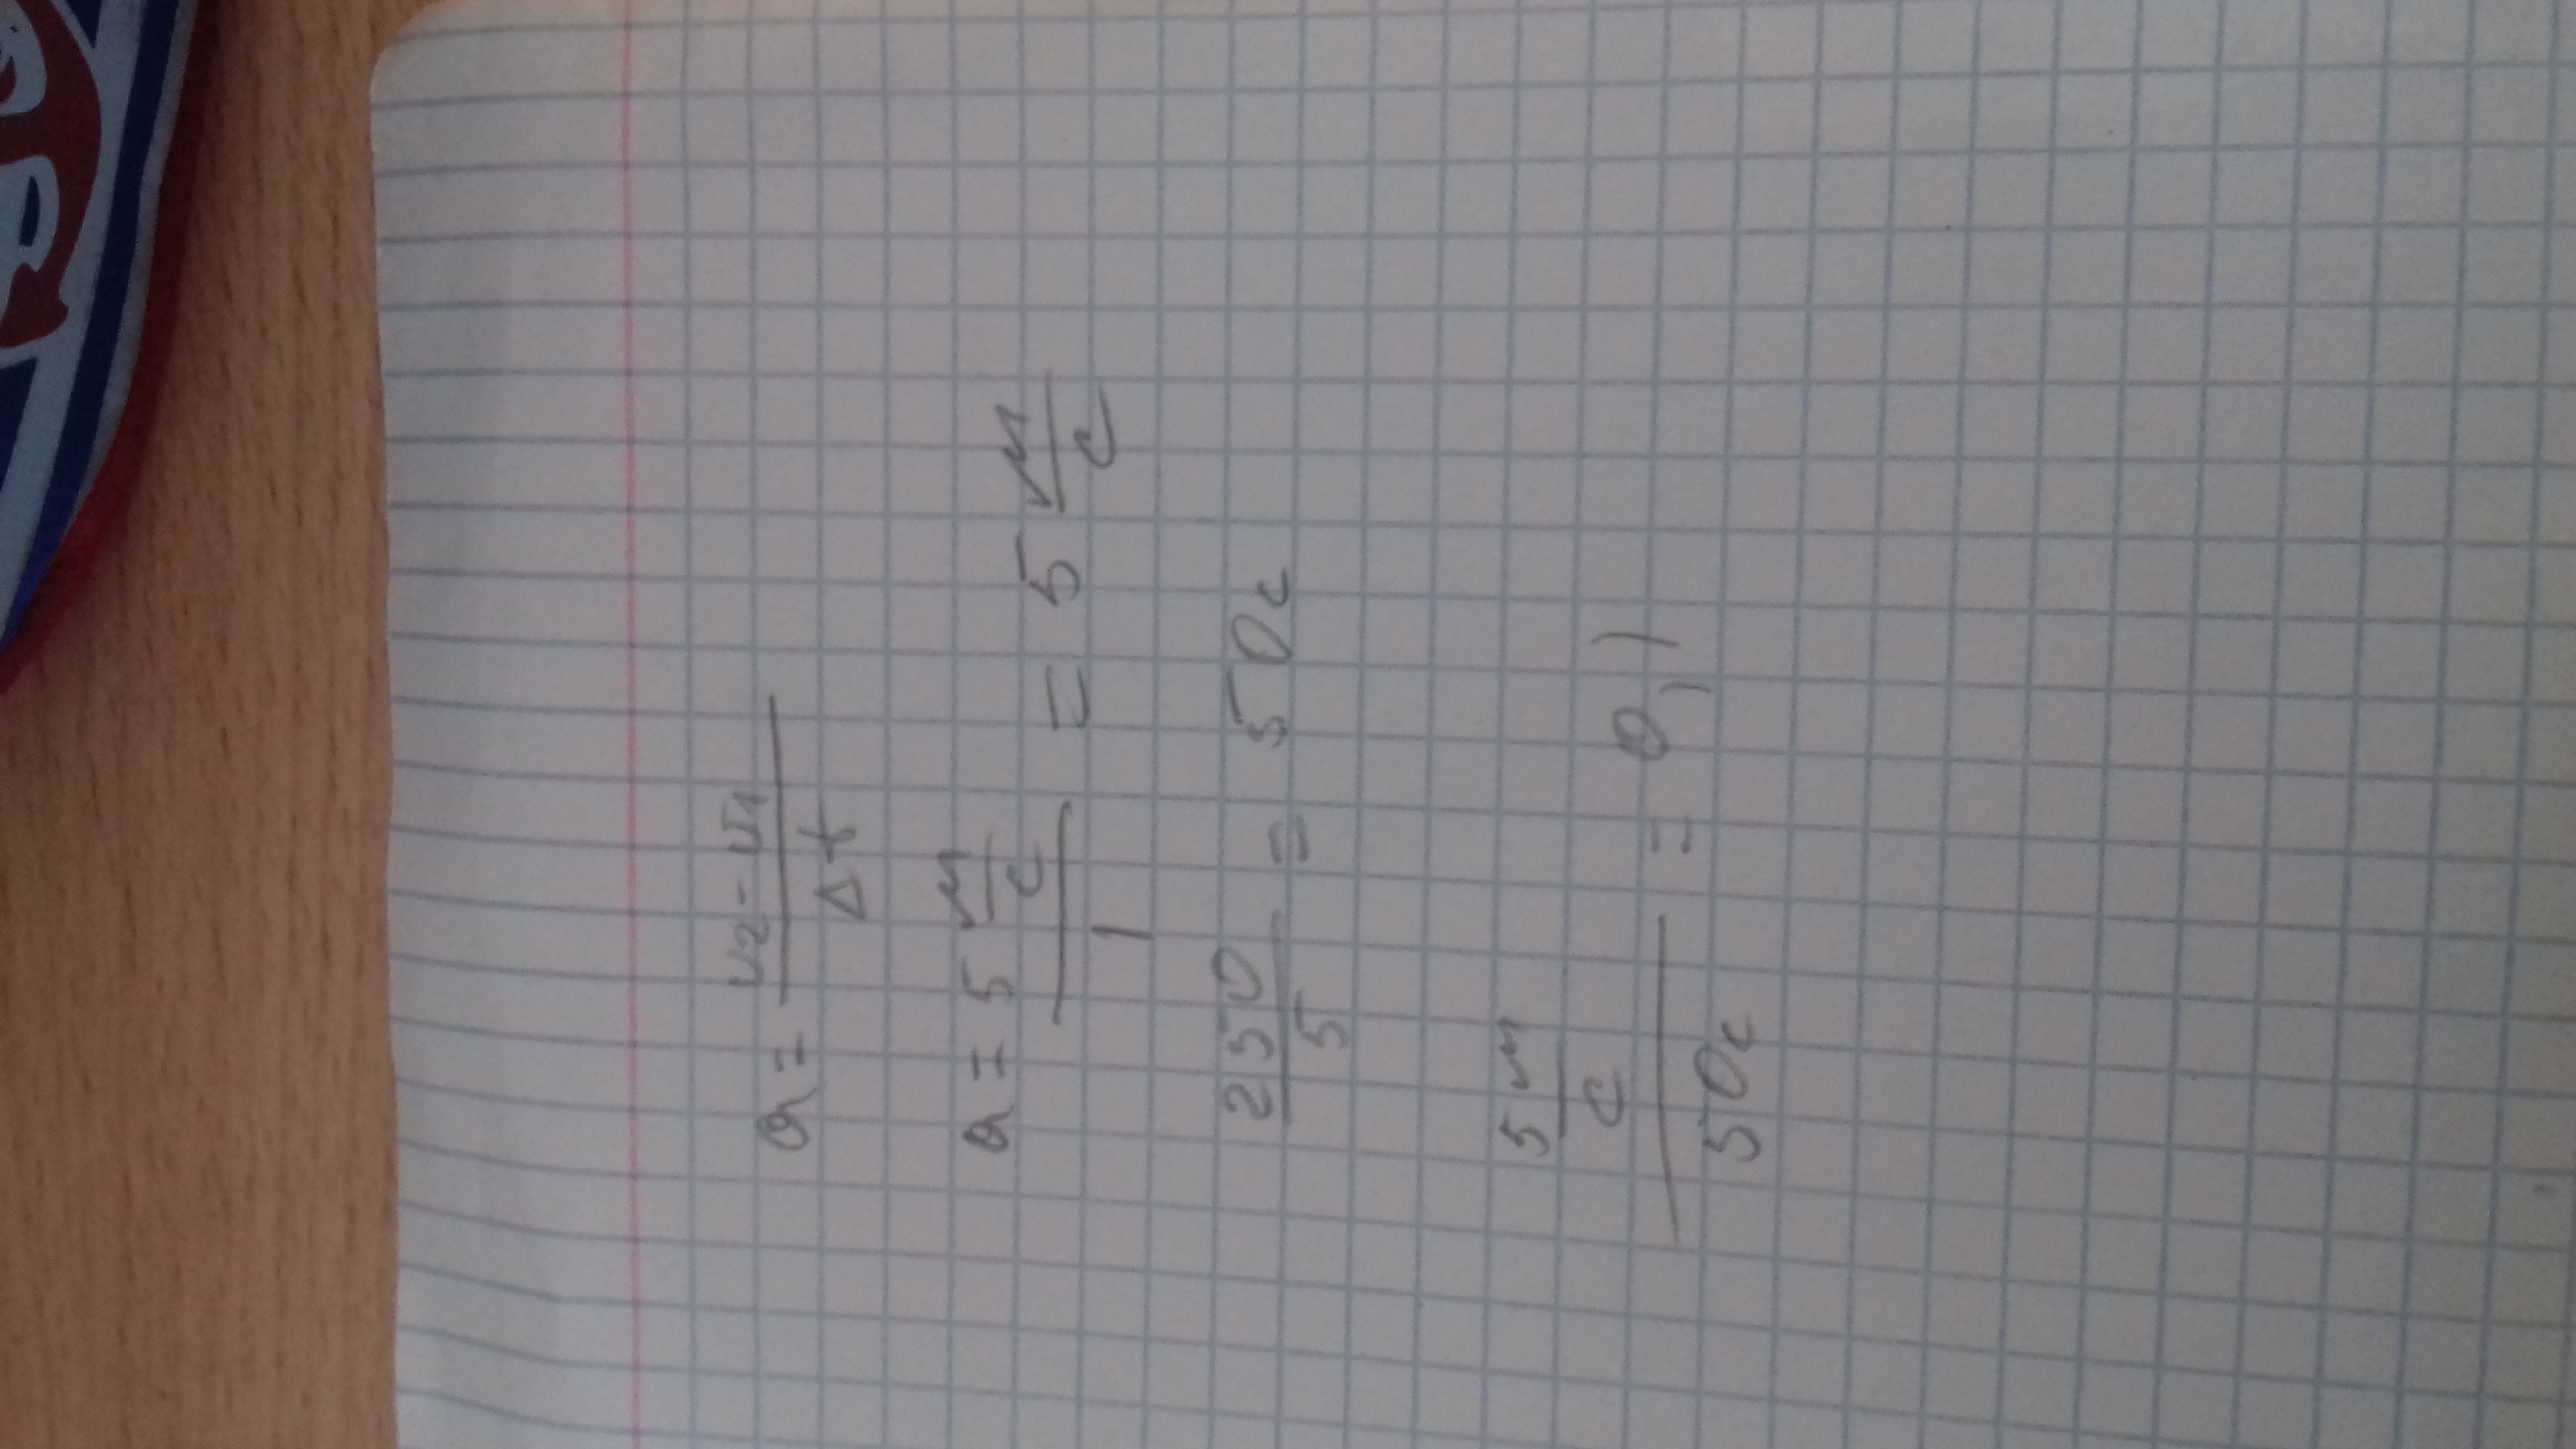 a = v2 - v1 / Δt
a = 5 м/с / 1 = 5 м/с
250 / 5 = 50с
5 м/с / 50с = 0,1